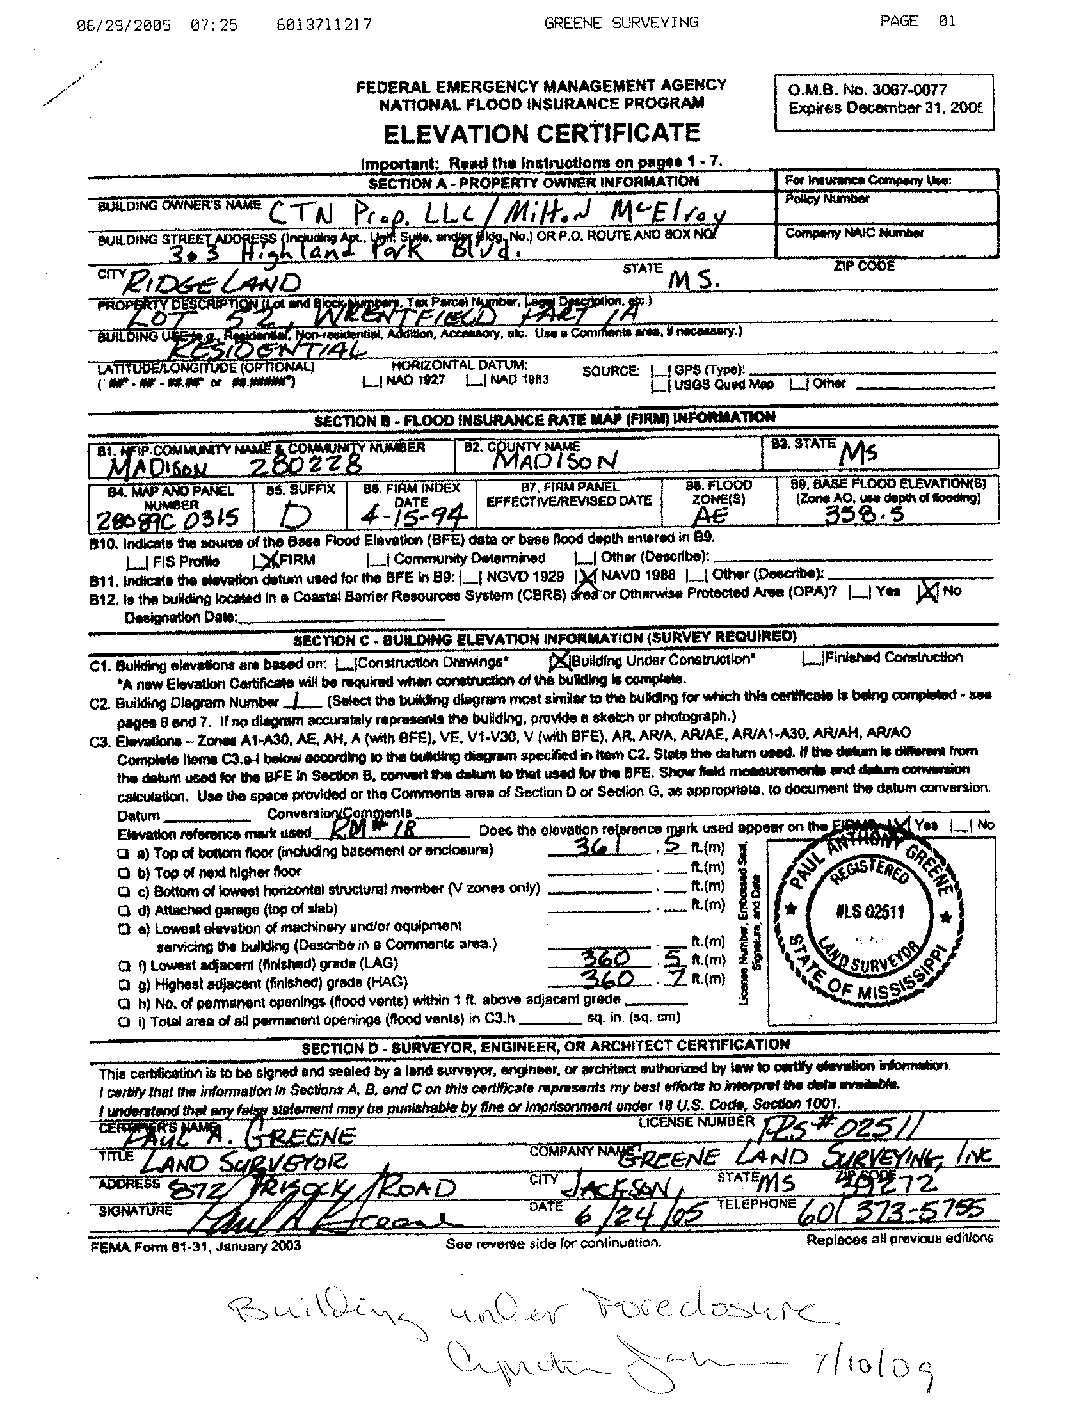 06/29/2005 07:25 6013711217 GREENE SURVEYING PAGE 01
FEDERAL EMERGENCY MANAGEMENT AGENCY
NATIONAL FLOOD INSURANCE PROGRAM
ELEVATION CERTIFICATE
Important: Read the instructions on pages 1 - 7.
O.M.B. No. 3067-0077
Expires December 31, 2005
SECTION A - PROPERTY OWNER INFORMATION
For Insurance Company Use:
BUILDING OWNER'S NAME CTN Prop. LLC / Milton McElroy
Policy Number
BUILDING STREET ADDRESS (Including Apt., Unit, Suite, and/or Bldg. No.) OR P.O. ROUTE AND BOX NO.
303 Highland Park Blvd.
Company NAIC Number
CITY RIDGELAND STATE MS. ZIP CODE
PROPERTY DESCRIPTION (Lot and Block Numbers, Tax Parcel Number, Legal Description, etc.)
LOT 52, WRENTFIELD PART 1A
BUILDING USE (e.g., Residential, Non-residential, Addition, Accessory, etc. Use a Comments area, if necessary.)
RESIDENTIAL
LATITUDE/LONGITUDE (OPTIONAL) HORIZONTAL DATUM: SOURCE: |_| GPS (Type):
( ##° - ##' - ##.##" or ##.#####°) |_| NAD 1927 |_| NAD 1983 |_| USGS Quad Map |_| Other
SECTION B - FLOOD INSURANCE RATE MAP (FIRM) INFORMATION
B1. NFIP COMMUNITY NAME & COMMUNITY NUMBER B2. COUNTY NAME B3. STATE
MADISON 280228 MADISON MS
B4. MAP AND PANEL NUMBER B5. SUFFIX B6. FIRM INDEX DATE B7. FIRM PANEL EFFECTIVE/REVISED DATE B8. FLOOD ZONE(S) B9. BASE FLOOD ELEVATION(S) (Zone AO, use depth of flooding)
28089C 0315 D 4-15-94 AE 358.5
B10. Indicate the source of the Base Flood Elevation (BFE) data or base flood depth entered in B9.
|_| FIS Profile |X| FIRM |_| Community Determined |_| Other (Describe):
B11. Indicate the elevation datum used for the BFE in B9: |_| NGVD 1929 |X| NAVD 1988 |_| Other (Describe):
B12. Is the building located in a Coastal Barrier Resources System (CBRS) area or Otherwise Protected Area (OPA)? |_| Yes |X| No
Designation Date:
SECTION C - BUILDING ELEVATION INFORMATION (SURVEY REQUIRED)
C1. Building elevations are based on: |_| Construction Drawings* |X| Building Under Construction* |_| Finished Construction
*A new Elevation Certificate will be required when construction of the building is complete.
C2. Building Diagram Number 1 (Select the building diagram most similar to the building for which this certificate is being completed - see
pages 6 and 7. If no diagram accurately represents the building, provide a sketch or photograph.)
C3. Elevations – Zones A1-A30, AE, AH, A (with BFE), VE, V1-V30, V (with BFE), AR, AR/A, AR/AE, AR/A1-A30, AR/AH, AR/AO
Complete Items C3.a-i below according to the building diagram specified in Item C2. State the datum used. If the datum is different from
the datum used for the BFE in Section B, convert the datum to that used for the BFE. Show field measurements and datum conversion
calculation. Use the space provided or the Comments area of Section D or Section G, as appropriate, to document the datum conversion.
Datum Conversion/Comments
Elevation reference mark used RM # 18 Does the elevation reference mark used appear on the FIRM? |X| Yes |_| No
a) Top of bottom floor (including basement or enclosure) 361 . 5 ft.(m)
b) Top of next higher floor . ft.(m)
c) Bottom of lowest horizontal structural member (V zones only) . ft.(m)
d) Attached garage (top of slab) . ft.(m)
e) Lowest elevation of machinery and/or equipment
servicing the building (Describe in a Comments area.) . ft.(m)
f) Lowest adjacent (finished) grade (LAG) 360 . 5 ft.(m)
g) Highest adjacent (finished) grade (HAG) 360 . 7 ft.(m)
h) No. of permanent openings (flood vents) within 1 ft. above adjacent grade
i) Total area of all permanent openings (flood vents) in C3.h sq. in. (sq. cm)
License Number, Embossed Seal,
Signature, and Date
PAUL ANTHONY GREENE
REGISTERED
#LS 02511
LAND SURVEYOR
STATE OF MISSISSIPPI
SECTION D - SURVEYOR, ENGINEER, OR ARCHITECT CERTIFICATION
This certification is to be signed and sealed by a land surveyor, engineer, or architect authorized by law to certify elevation information.
I certify that the information in Sections A, B, and C on this certificate represents my best efforts to interpret the data available.
I understand that any false statement may be punishable by fine or imprisonment under 18 U.S. Code, Section 1001.
CERTIFIER'S NAME PAUL A. GREENE LICENSE NUMBER PLS # 02511
TITLE LAND SURVEYOR COMPANY NAME GREENE LAND SURVEYING, INC
ADDRESS 872 TRISOCK ROAD CITY JACKSON, STATE MS ZIP CODE 39272
SIGNATURE Paul A Greene DATE 6/24/05 TELEPHONE 601 373-5755
FEMA Form 81-31, January 2003 See reverse side for continuation. Replaces all previous editions
Building under Foreclosure
7/10/09